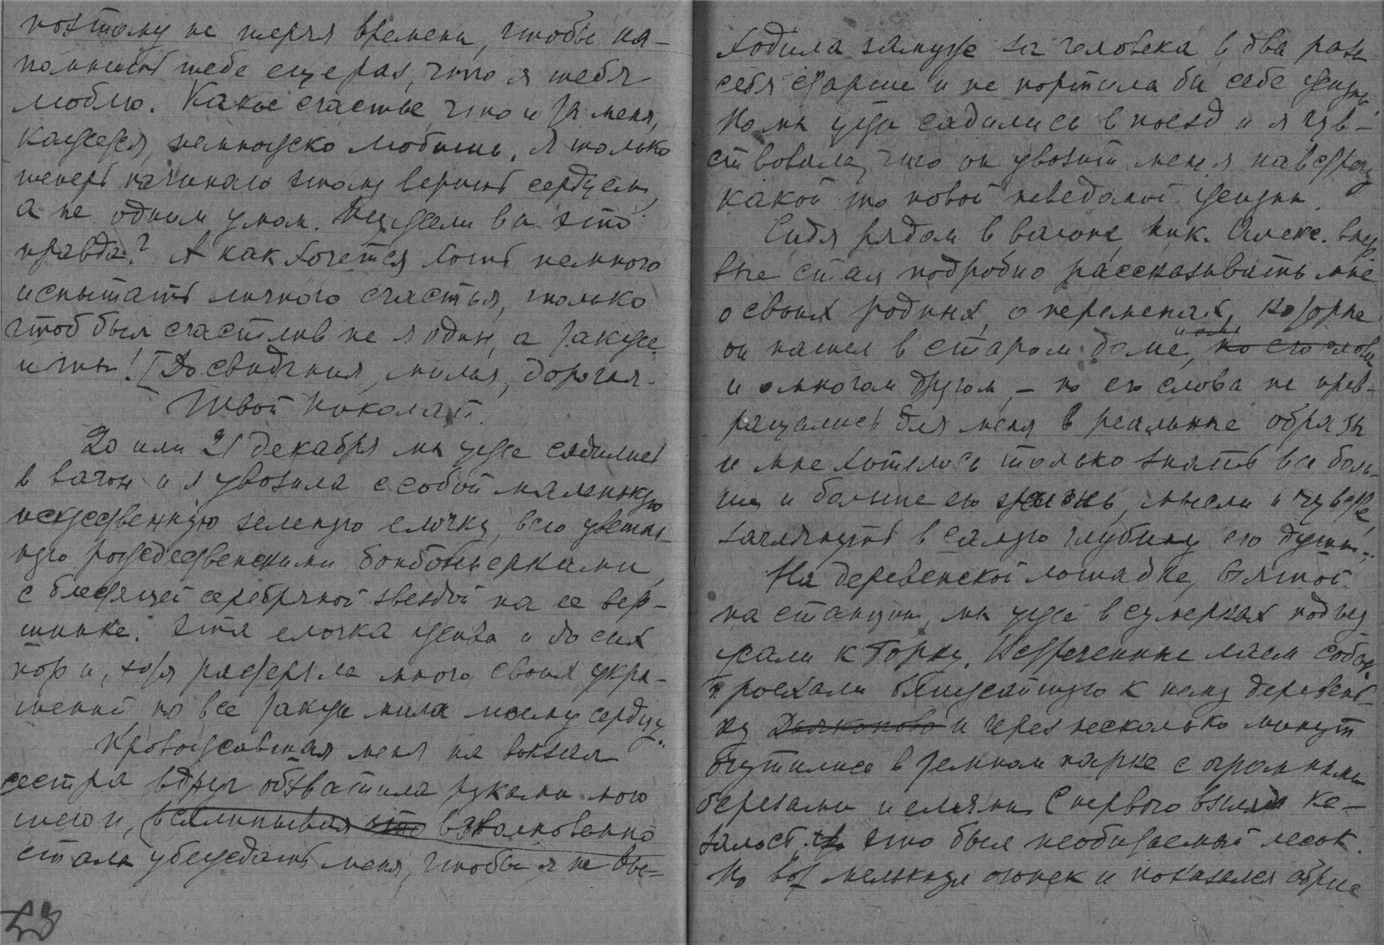 поэтому не теряя времени, чтобы на-
помнить тебе еще раз, что я тебя
люблю. Какое счастье что и ты меня,
кажется, немножко любишь. Я только
теперь начинаю этому верить сердцем,
а не одним умом. Неужели вы это
правда? А как хочется хоть немного
испытать личного счастья, только
чтоб был счастлив не я один, а также
и ты! [До свидания, милая, дорогая.
Твой Николай.
20 или 21 декабря мы уже садились
в вагон и я увозила с собой маленькую
искусственную зеленую елочку, всю увешан-
ную рождественскими бонбоньерками,
с блестящей серебряной звездой на ее вер-
шинке. Эта елочка жива и до сих
пор и, хотя растеряла много своих укра-
шений, но все также мила моему сердцу.
Провожавшая меня на вокзал
сестра вдруг обхватила руками мою
шею и, всхлипывая взволнованно
стала убеждать меня, чтобы я не вы-
ходила замуж за человека в два раза
себя старше и не портила бы себе жизнь.
Но мы уже садились в поезд и я чув-
ствовала, что он увозит меня навстречу
какой то новой неведомой жизни.
Сидя рядом в вагоне, Ник. Алекс. впер
вые стал подробно рассказывать мне
о своих родных, о переменах, которые
он нашел в старом доме, по его словам
и о многом другом, – но его слова не прев-
ращались для меня в реальные образы
и мне хотелось только знать все боль-
ше и больше его жизнь, мысли и чувства,
заглянуть в самую глубину его души...
На деревенской лошадке, взятой
на станции, мы уже в сумерках подъез
жали к Торну. Встреченные лаем собак,
проехали ближайшую к нему деревень-
ку Дьяконово и через несколько минут
очутились в темном парке с огромными
березами и елями. С первого взгляда ка-
залось, что это был необитаемый лесок.
Но вот мелькнул огонек и показался абрис
23